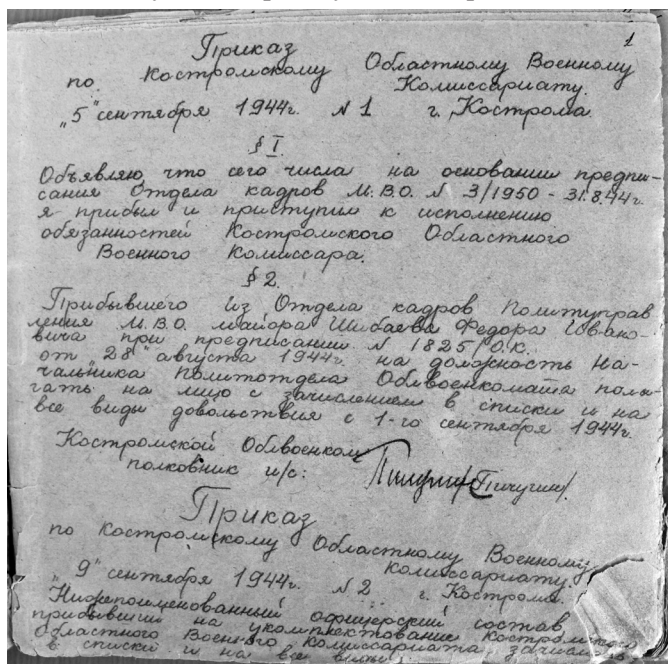 1
Приказ
по Костромскому Областному Военному
Комиссариату.
"5" сентября 1944г. № 1 г. Кострома.
§ I.
Объявляю, что сего числа на основании предпи-
сания Отдела кадров М.В.О. № 3/1950 - 31.8.44г.
я прибыл и приступил к исполнению
обязанностей Костромского Областного
Военного Комиссара.
§ 2.
Прибывшего из Отдела кадров Политуправ
ления М.В.О. майора Шибаева Федора Ивано-
вича при предписании № 1825/О.К.
от "28" августа 1944г. на должность На-
чальника Политотдела Облвоенкомата пола-
гать на лицо с зачислением в списки и на
все виды довольствия с 1-го сентября 1944г.
Костромской Облвоенком
полковник и/с: /Пичугин/.
Приказ
по Костромскому Областному Военному
Комиссариату.
"9" сентября 1944г. № 2 г. Кострома.
Нижепоименованный офицерский состав
прибывший на укомплектование Костромского
Областного Военного Комиссариата зачислить
в списки и на все виды